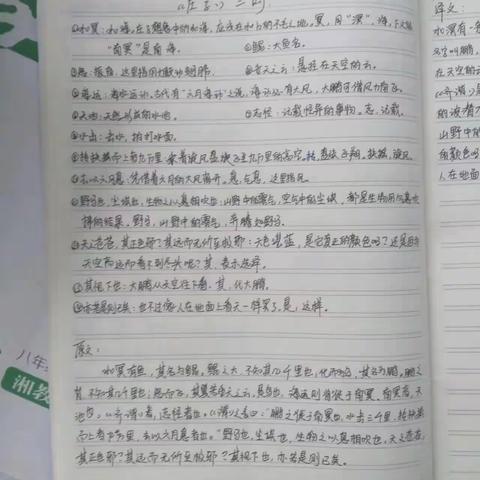 《庄子》二则
①北冥：北海，在
"南冥"是南海。 ②鲲：大鱼名。
③怒：振奋，这里指用力鼓动翅膀。 ④垂天之云：悬挂在天空的云。
⑤海运：海水运动，古代有"六月海动"之说，海动必有大风，大鹏可借风力南飞。
⑥天池：天然形成的水池。 ⑦志怪：记载怪异的事物。志，记载。
⑧水击：击水，拍打水面。
旋风
⑩去以六月息：凭借着六月的大风离开。息，气息，这里指风。
野马也，尘埃也，生物之以息相吹也：山野中的雾气，空气中的尘埃，都是生物用气息吹
拂的结果。野马，山野中的雾气，奔腾如野马。
天之苍苍，其正色邪？其远而无所至极邪：天色湛蓝，是它真正的颜色吗？还是因为
天空高远而看不到尽头呢？其，表示选择。
其视下也：大鹏从天空往下看。其，代大鹏。
亦若是则已矣：也不过像人在地面上看天一样罢了。是，这样。
原文：
北冥有鱼，其名为鲲。鲲之大，不知其几千里也；化而为鸟，其名为鹏。鹏之
背，不知其几千里也；怒而飞，其翼若垂天之云。是鸟也，海运则将徙于南冥。南冥者，天
池也。《齐谐》者，志怪者也。《谐》之言曰："鹏之徙于南冥也，水击三千里，抟扶摇
而上者九万里，去以六月息者也。"野马也，尘埃也，生物之以息相吹也。天之苍苍，
其正色邪？其远而无所至极邪？其视下也，亦若是则已矣。
译文：
在天空的云
《齐谐》是
山野中的
的颜色吗
人在地面
八年级
湘教